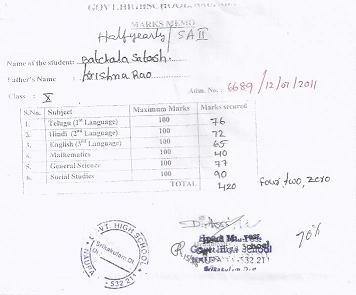 GOVT.HIGH SCHOOL,
MARKS MEMO
Halfyearly / SA II
Name of the student: Batchala Satosh.
Father's Name : Krishna Rao
Adm. No. : 6689 /12/01/2011
Class : X
S.No. Subject Maximum Marks Marks secured
1. Telugu (1st Language) 100 76
2. Hindi (2nd Language) 100 72
3. English (3rd Language) 100 65
4. Mathematics 100 40
5. General Science 100 77
6. Social Studies 100 90
TOTAL 420 four, two, zero
70%
VT. HIGH SCHOOL
Srikakulam.Dt
532 21
Govt High School
532 21
Srikakulam